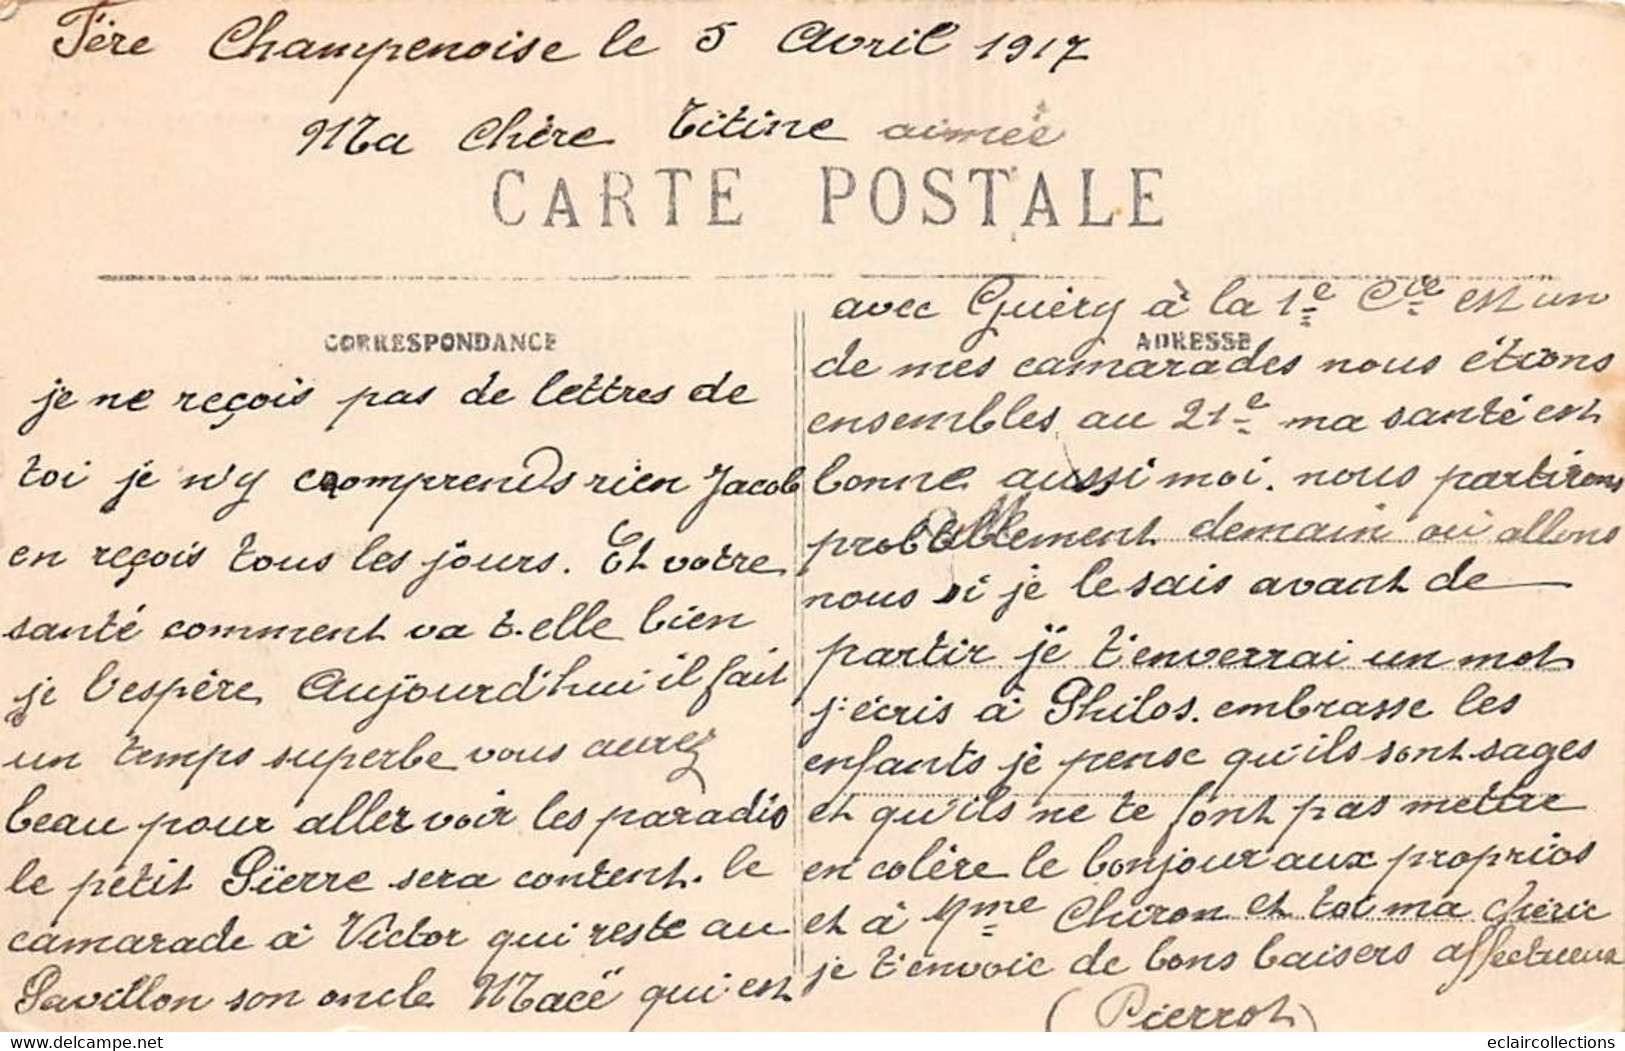 Fère Champenoise le 5 Avril 1917
Ma Chère Titine aimée
CARTE POSTALE
CORRESPONDANCE
je ne reçois pas de lettres de
toi je n'y comprends rien Jacob
en reçois tous les jours. Et votre
santé comment va t-elle bien
je l'espère Aujourd'hui il fait
un temps superbe vous aurez
beau pour aller voir les paradis
le petit Pierre sera content. le
camarade à Victor qui reste au
Pavillon son oncle Macé qui est
ADRESSE
avec Guéry à la 1e Cie est un
de mes camarades nous étions
ensembles au 21e ma santé est
bonne aussi moi. nous partirons
probablement demain où allons
nous si je le sais avant de
partir je t'enverrai un mot
j'écris à Philos. embrasse les
enfants je pense qu'ils sont sages
et qu'ils ne te font pas mettre
en colère le bonjour aux proprios
et à Mme Chiron et toi ma chérie
je t'envoie de bons baisers affectueux
(Pierrot)
eclaircollections